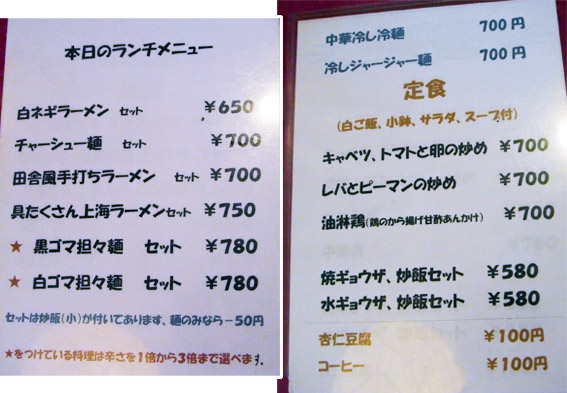 本日のランチメニュー
白ネギラーメン セット ￥650
チャーシュー麺 セット ￥700
田舎風手打ちラーメン セット ￥700
具たくさん上海ラーメンセット ￥750
★ 黒ゴマ担々麺 セット ￥780
★ 白ゴマ担々麺 セット ￥780
セットは炒飯(小)が付いてあります、麺のみなら－50円
★をつけている料理は辛さを1倍から3倍まで選べます。
中華冷し冷麺 700円
冷しジャージャー麺 700円
定食
(白ご飯、小鉢、サラダ、スープ付)
キャベツ、トマトと卵の炒め ￥700
レバとピーマンの炒め ￥700
油淋鶏(鶏のから揚げ甘酢あんかけ) ￥700
焼ギョウザ、炒飯セット ￥580
水ギョウザ、炒飯セット ￥580
杏仁豆腐 ￥100円
コーヒー ￥100円